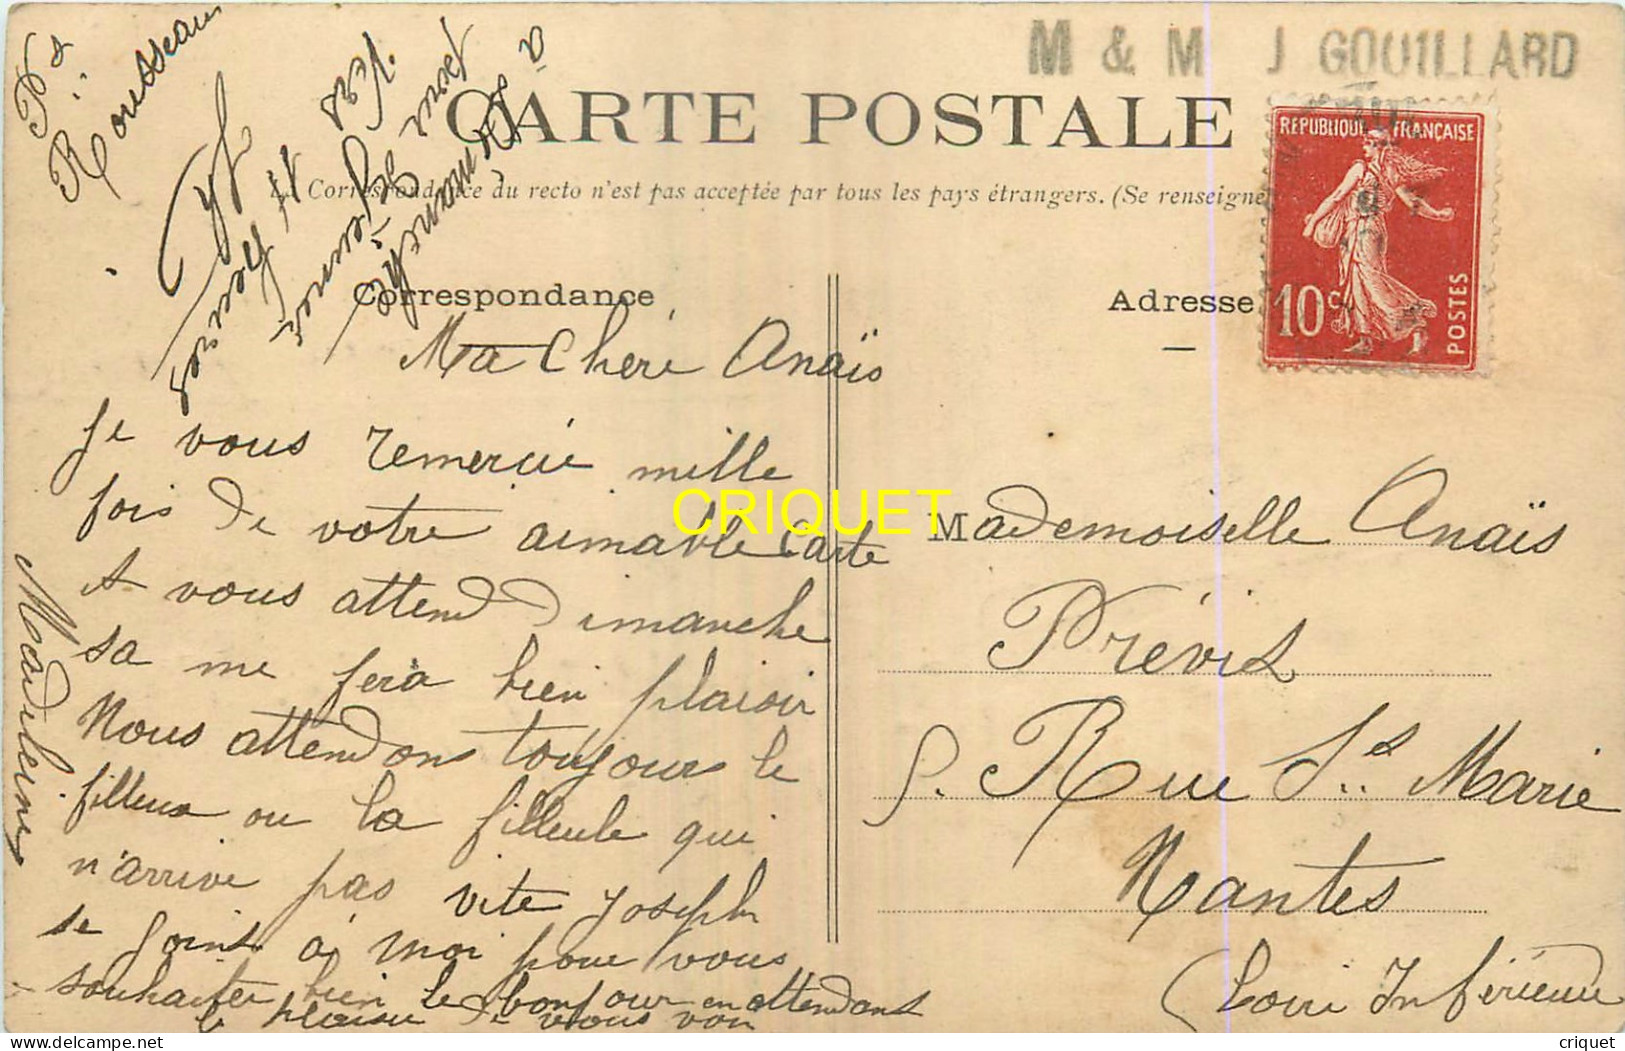 M & M J GOUILLARD
CARTE POSTALE
La Correspondance du recto n'est pas acceptée par tous les pays étrangers. (Se renseigne
REPUBLIQUE FRANÇAISE
10c
POSTES
Correspondance
Adresse
Ps
Rousseau
à
Ma Chéré Anaïs
Je vous remercie mille
fois de votre aimable Carte
et vous attend Dimanche
sa me fera bien plaisir
Nous attendons toujours le
filleul ou la filleule qui
n'arrive pas vite Joseph
se joint à moi pour vous
souhaiter bien le bonjour en attendant
le plaisir de vous voir
Madeleine
CRIQUET
Mademoiselle Anaïs
Prévis
9. Rue Ste Marie
Nantes
(Loire Inférieure
criquet
www.delcampe.net